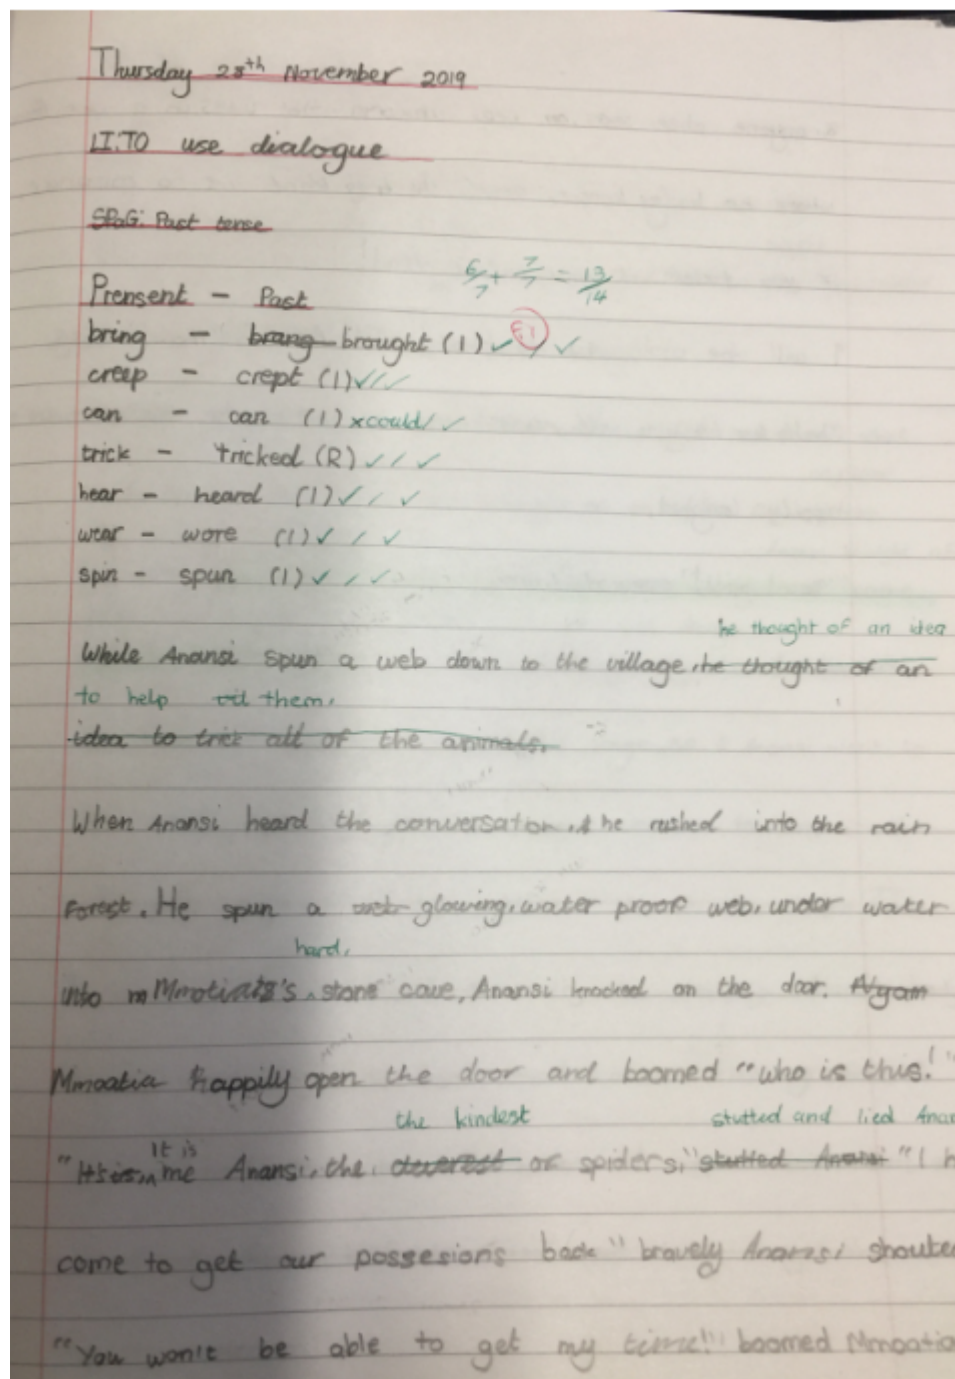 Thursday 28th November 2019
LI: TO use dialogue
SPaG: Past tense
6/7 + 7/7 = 13/14
Prensent - Past
bring - brang brought (1) ✓ ✓
creep - crept (1) ✓ ✓ ✓
can - can (1) x could / ✓
trick - tricked (R) ✓ ✓ ✓
hear - heard (1) ✓ / ✓
wear - wore (1) ✓ / ✓
spin - spun (1) ✓ / ✓
he thought of an idea
While Anansi spun a web down to the village, he thought of an
to help them.
idea to trick all of the animals.
When Anansi heard the conversation, he rushed into the rain
Forest. He spun a web glowing, water proof web, under water
hard,
into Mmotia's stone cave, Anansi knocked on the door. Nyam
Mmoatia happily open the door and boomed "who is this!"
the kindest stutted and lied Anan
It is
"It is me Anansi, the cleverest of spiders," stutted Anansi "I h
come to get our possesions back" bravely Anansi shoute
"You won't be able to get my time!" boomed Mmoatia